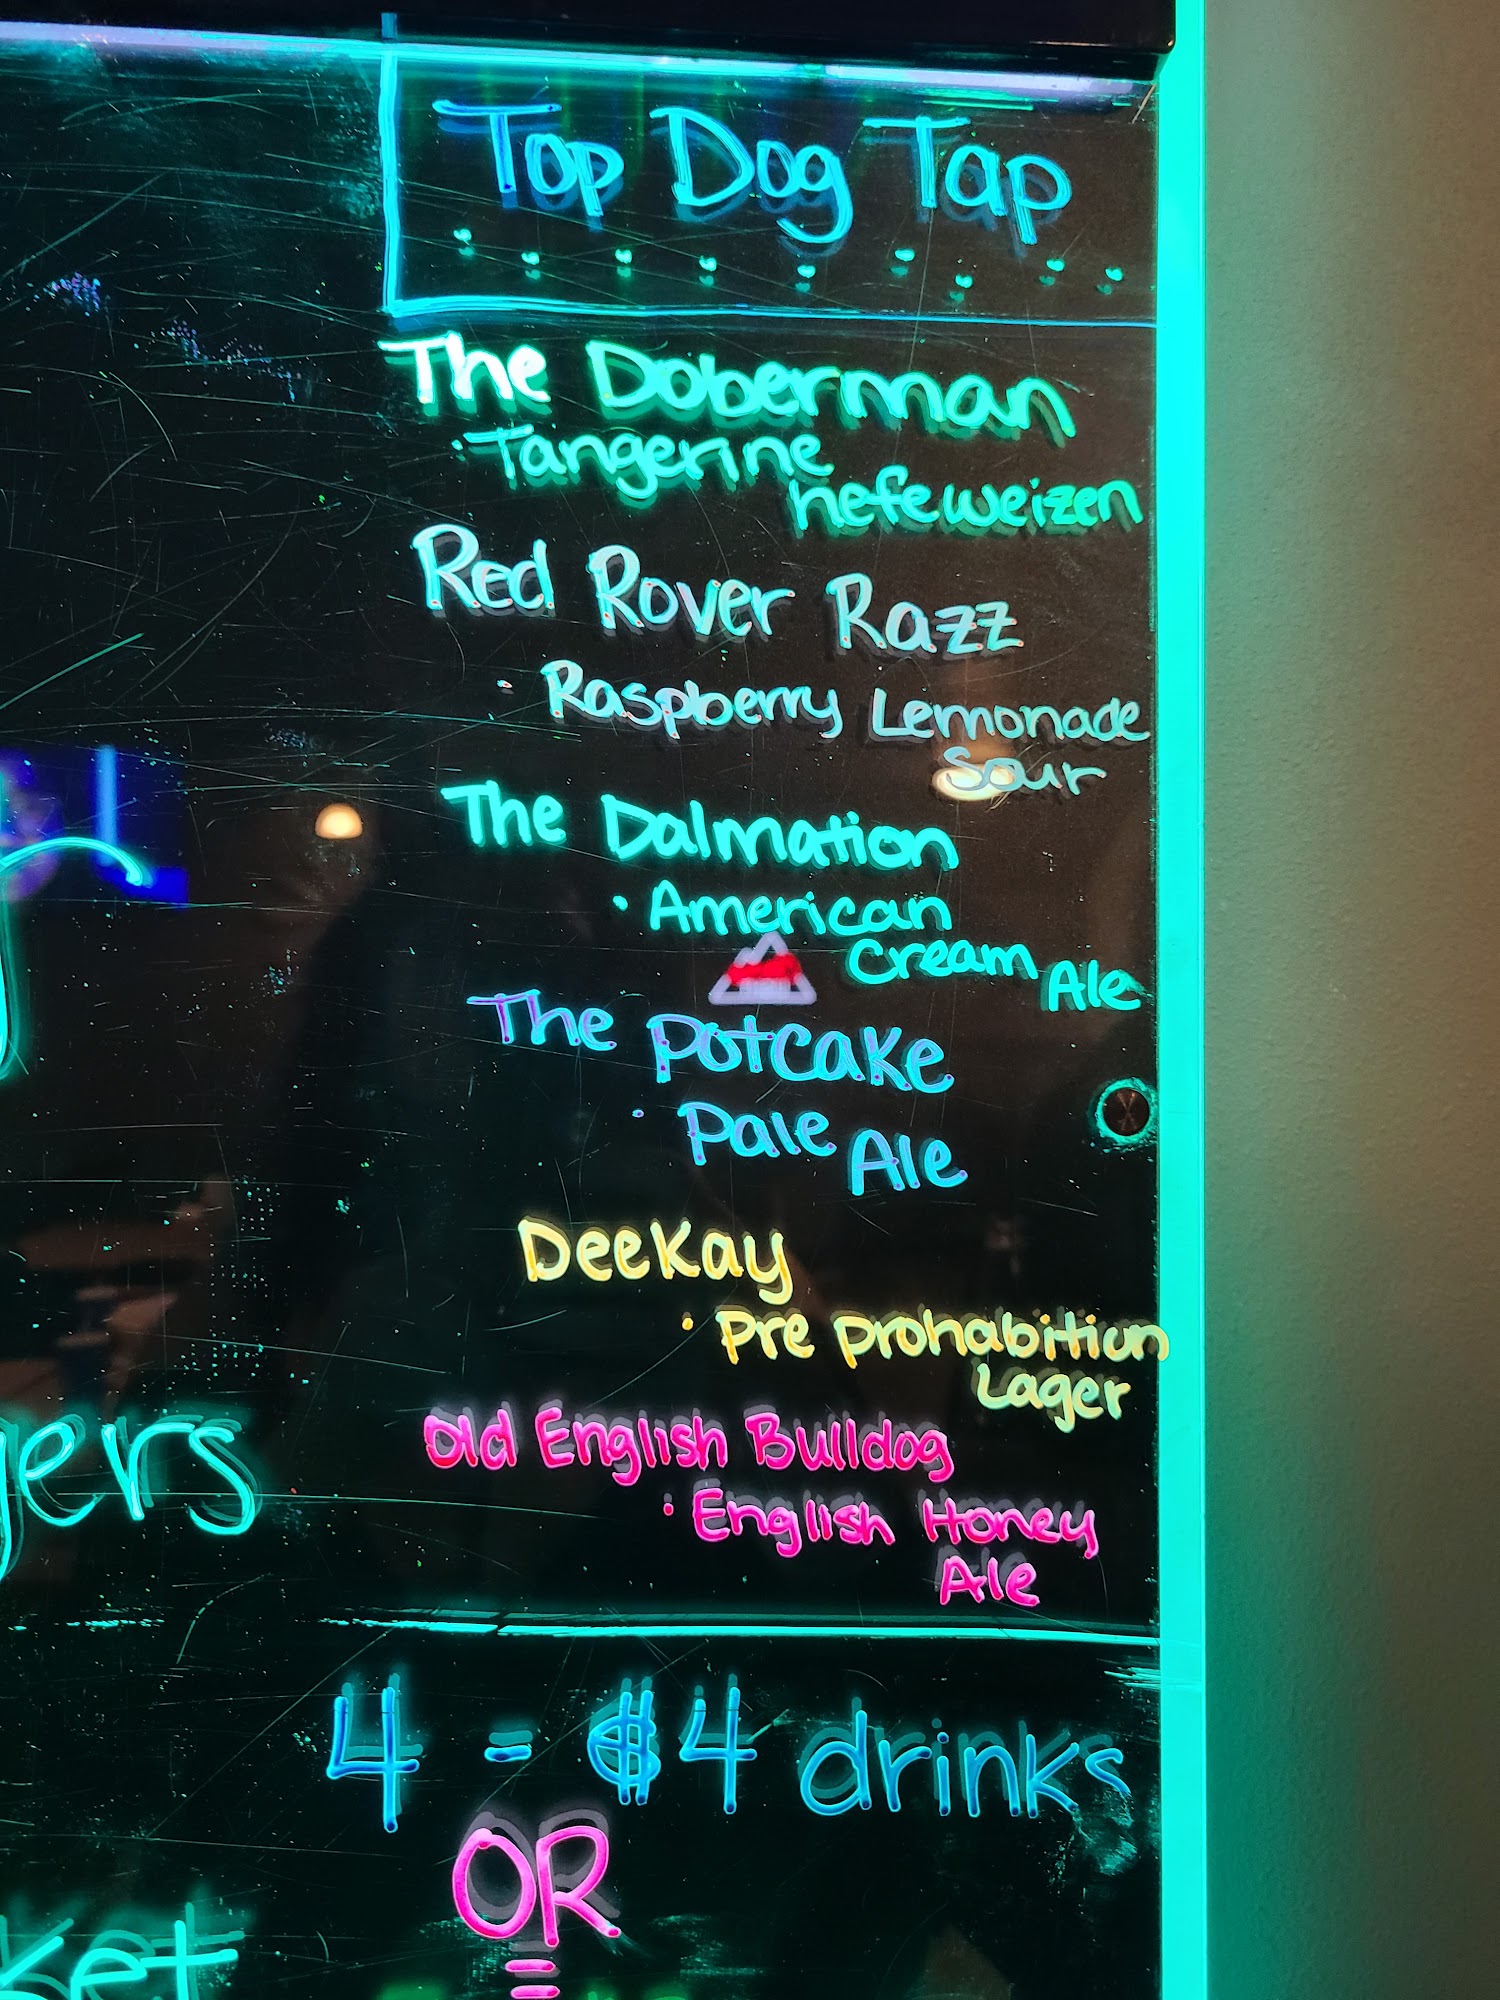 Top Dog Tap
The Doberman
· Tangerine
hefeweizen
Red Rover Razz
· Raspberry Lemonade
Sour
The Dalmation
· American
Cream Ale
The Potcake
· Pale Ale
DeeKay
· Pre prohabition
Lager
Old English Bulldog
· English Honey
Ale
gers
4 = $4 drinks
OR
=
ket